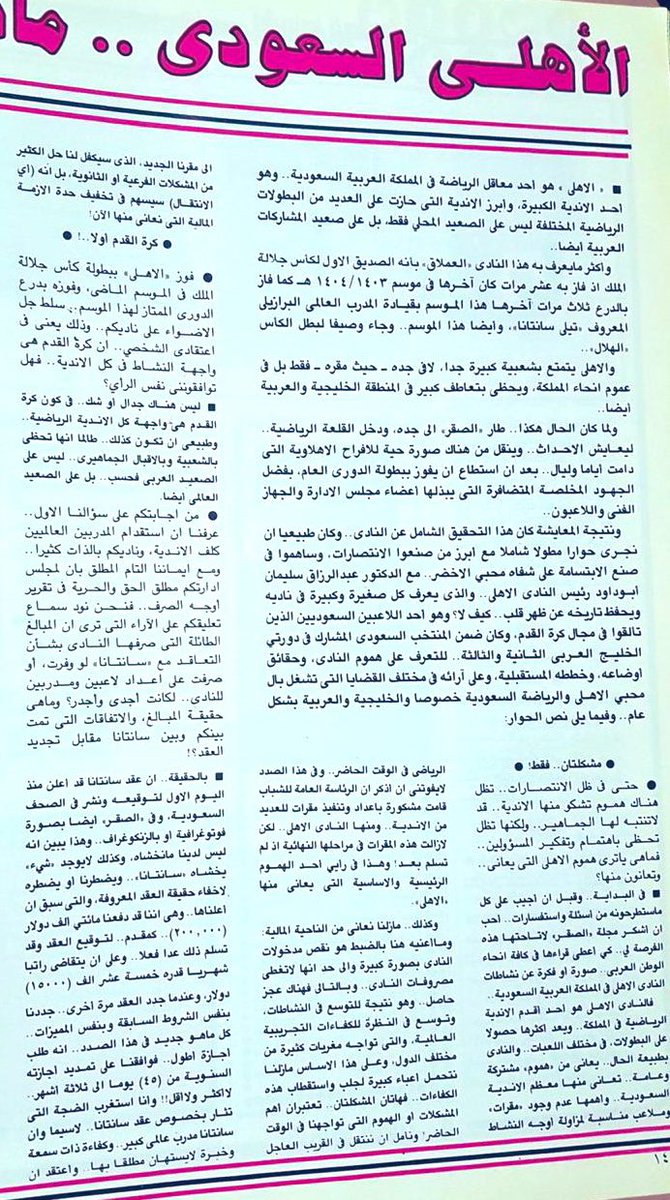 الأهلى السعودى ..
■ « الاهلى » هو احد معاقل الرياضة فى المملكة العربية السعودية.. وهو
احد الاندية الكبيرة، وابرز الاندية التى حازت على العديد من البطولات
الرياضية المختلفة ليس على الصعيد المحلي فقط، بل على صعيد المشاركات
العربية ايضا..
واكثر مايعرف به هذا النادى «العملاق» بانه الصديق الاول لكأس جلالة
الملك اذ فاز به عشر مرات كان آخرها فى موسم ١٤٠٤/١٤٠٣ هـ كما فاز
بالدرع ثلاث مرات آخرها هذا الموسم بقيادة المدرب العالمى البرازيلى
المعروف «تيلى سانتانا»، وأيضا هذا الموسم.. وجاء وصيفا لبطل الكأس
«الهلال»..
والاهلى يتمتع بشعبية كبيرة جدا، لافى جده ـ حيث مقره ـ فقط بل فى
عموم انحاء المملكة، ويحظى بتعاطف كبير فى المنطقة الخليجية والعربية
ايضا..
ولما كان الحال هكذا.. طار «الصقر» الى جده، ودخل القلعة الرياضية..
ليعايش الاحداث.. وينقل من هناك صورة حية للأفراح الاهلاوية التى
دامت اياما وليال.. بعد ان استطاع ان يفوز ببطولة الدورى العام، بفضل
الجهود المخلصة المتضافرة التى يبذلها أعضاء مجلس الادارة والجهاز
الفنى واللاعبون..
ونتيجة المعايشة كان هذا التحقيق الشامل عن النادى.. وكان طبيعيا ان
نجرى حوارا مطولا شاملا مع ابرز من صنعوا الانتصارات، وساهموا فى
صنع الابتسامة على شفاه محبي الاخضر.. مع الدكتور عبدالرزاق سليمان
ابوداود رئيس النادى الاهلى.. والذى يعرف كل صغيرة وكبيرة فى ناديه
ويحفظ تاريخه عن ظهر قلب.. كيف لا؟ وهو أحد اللاعبين السعوديين الذين
تالقوا فى مجال كرة القدم، وكان ضمن المنتخب السعودى المشارك فى دورتي
الخليج العربى الثانية والثالثة.. للتعرف على هموم النادى، وحقائق
اوضاعه، وخططه المستقبلية، وعلى آرائه فى مختلف القضايا التى تشغل بال
محبي الاهلى والرياضة السعودية خصوصا والخليجية والعربية بشكل
عام.. وفيما يلى نص الحوار:
● مشكلتان.. فقط! ●
● حتى فى ظل الانتصارات.. تظل
هناك هموم تشكو منها الاندية.. قد
لاتنتبه لها الجماهير.. ولكنها تظل
تحظى باهتمام وتفكير المسؤولين..
فماهى ياترى هموم الاهلى التى يعانى..
وتعانون منها؟
■ فى البداية.. وقبل ان اجيب على كل
ماستطرحونه من أسئلة واستفسارات.. احب
ان اشكر مجلة «الصقر» لاتاحتها هذه
الفرصة لى.. كي اعطى قراءها فى كافة انحاء
الوطن العربى.. صورة او فكرة عن نشاطات
النادى الاهلى فى المملكة العربية السعودية..
فالنادى الاهلى هو احد اقدم الاندية
الرياضية فى المملكة.. ويعد اكثرها حصولا
على البطولات، فى مختلف اللعبات.. والنادى
بطبيعة الحال.. يعانى من «هموم» مشتركة
وعامة.. تعانى منها معظم الاندية
السعودية.. واهمها عدم وجود «مقرات»
وملاعب مناسبة لمزاولة اوجه النشاط
الرياضى فى الوقت الحاضر.. وفى هذا الصدد
لايفوتنى ان اذكر ان الرئاسة العامة للشباب
قامت مشكورة باعداد وتنفيذ مقرات للعديد
من الاندية.. ومنها النادى الاهلى.. لكن
لازالت هذه المقرات فى مراحلها النهائية اذ لم
تسلم بعد! وهذا فى رايي احد الهموم
الرئيسية والاساسية التى يعانى منها
«الاهلى»..
وكذلك.. مازلنا نعانى من الناحية المالية:
ومااعنيه هنا بالضبط هو نقص مدخولات
النادى بصورة كبيرة والى حد انها لاتغطى
مصروفات النادى.. وبالتالى فهناك عجز
حاصل.. وهو نتيجة للتوسع فى النشاطات،
وتوسع فى النظرة للكفاءات التدريبية
العالمية، والتى تواجه مغريات كثيرة من
مختلف الدول، وعلى هذا الاساس مازلنا
نتحمل اعباء كبيرة لجلب واستقطاب هذه
الكفاءات.. فهاتان المشكلتان.. تعتبران اهم
المشكلات او الهموم التى تواجهنا فى الوقت
الحاضر! ونامل ان ننتقل فى القريب العاجل
الى مقرنا الجديد، الذى سيكفل لنا حل الكثير
من المشكلات الفرعية او الثانوية، بل انه (اي
الانتقال) سيسهم فى تخفيف حدة الازمة
المالية التى نعانى منها الآن!
● كرة القدم اولا..! ●
● فوز «الاهلى» ببطولة كأس جلالة
الملك فى الموسم الماضى، وفوزه بدرع
الدورى الممتاز لهذا الموسم.. سلط جل
الاضواء على ناديكم.. وذلك يعنى فى
اعتقادى الشخصي.. ان كرة القدم هى
واجهة النشاط فى كل الاندية.. فهل
توافقوننى نفس الرأي؟
■ ليس هناك جدال أو شك.. فى كون كرة
القدم هى واجهة كل الاندية الرياضية..
وطبيعى ان تكون كذلك.. طالما انها تحظى
بالشعبية وبالاقبال الجماهيرى.. ليس على
الصعيد العربى فحسب.. بل على الصعيد
العالمى ايضا.
● من اجابتكم على سؤالنا الاول..
عرفنا ان استقدام المدربين العالميين
كلف الاندية، وناديكم بالذات كثيرا..
ومع ايماننا التام المطلق بان لمجلس
ادارتكم مطلق الحق والحرية فى تقرير
اوجه الصرف.. فنحن نود سماع
تعليقكم على الآراء التى ترى ان المبالغ
الطائلة التى صرفها النادى بشأن
التعاقد مع «سانتانا» لو وفرت، أو
صرفت على أعداد لاعبين ومدربين
للنادى.. لكانت اجدى وأجدر؟ وماهى
حقيقة المبالغ، والاتفاقات التى تمت
بينكم وبين سانتانا مقابل تجديد
العقد؟!
■ بالحقيقة.. ان عقد سانتانا قد اعلن منذ
اليوم الاول لتوقيعه ونشر فى الصحف
السعودية، وفى «الصقر» ايضا بصورة
فوتوغرافية او بالزنكوغراف.. وهذا يبين انه
ليس لدينا مانخشاه، وكذلك لايوجد «شيء»
يخشاه «سانتانا».. ويضطرنا او يضطره
لاخفاء حقيقة العقد المعروفة، والتى سبق ان
اعلناها.. وهى اننا قد دفعنا مائتي الف دولار
(٢٠٠,٠٠٠).. كمقدم.. لتوقيع العقد وقد
تسلم ذلك عدا فعلا.. وعلى ان يتقاضى راتبا
شهريا قدره خمسة عشر الف (١٥٠٠٠)
دولار، وعندما جدد العقد مرة اخرى.. جددنا
بنفس الشروط السابقة وبنفس المميزات..
كل ماهو جديد فى هذا الصدد.. انه طلب
اجازة اطول.. فوافقنا على تمديد اجازته
السنوية من (٤٥) يوما الى ثلاثة اشهر..
لااكثر ولااقل!! وانا استغرب الضجة التى
تثار بخصوص عقد سانتانا.. لاسيما وان
سانتانا مدرب عالمى كبير.. وكفاءة ذات سمعة
وخبرة لايستهان مطلقا بها.. واعتقد ان
١٤